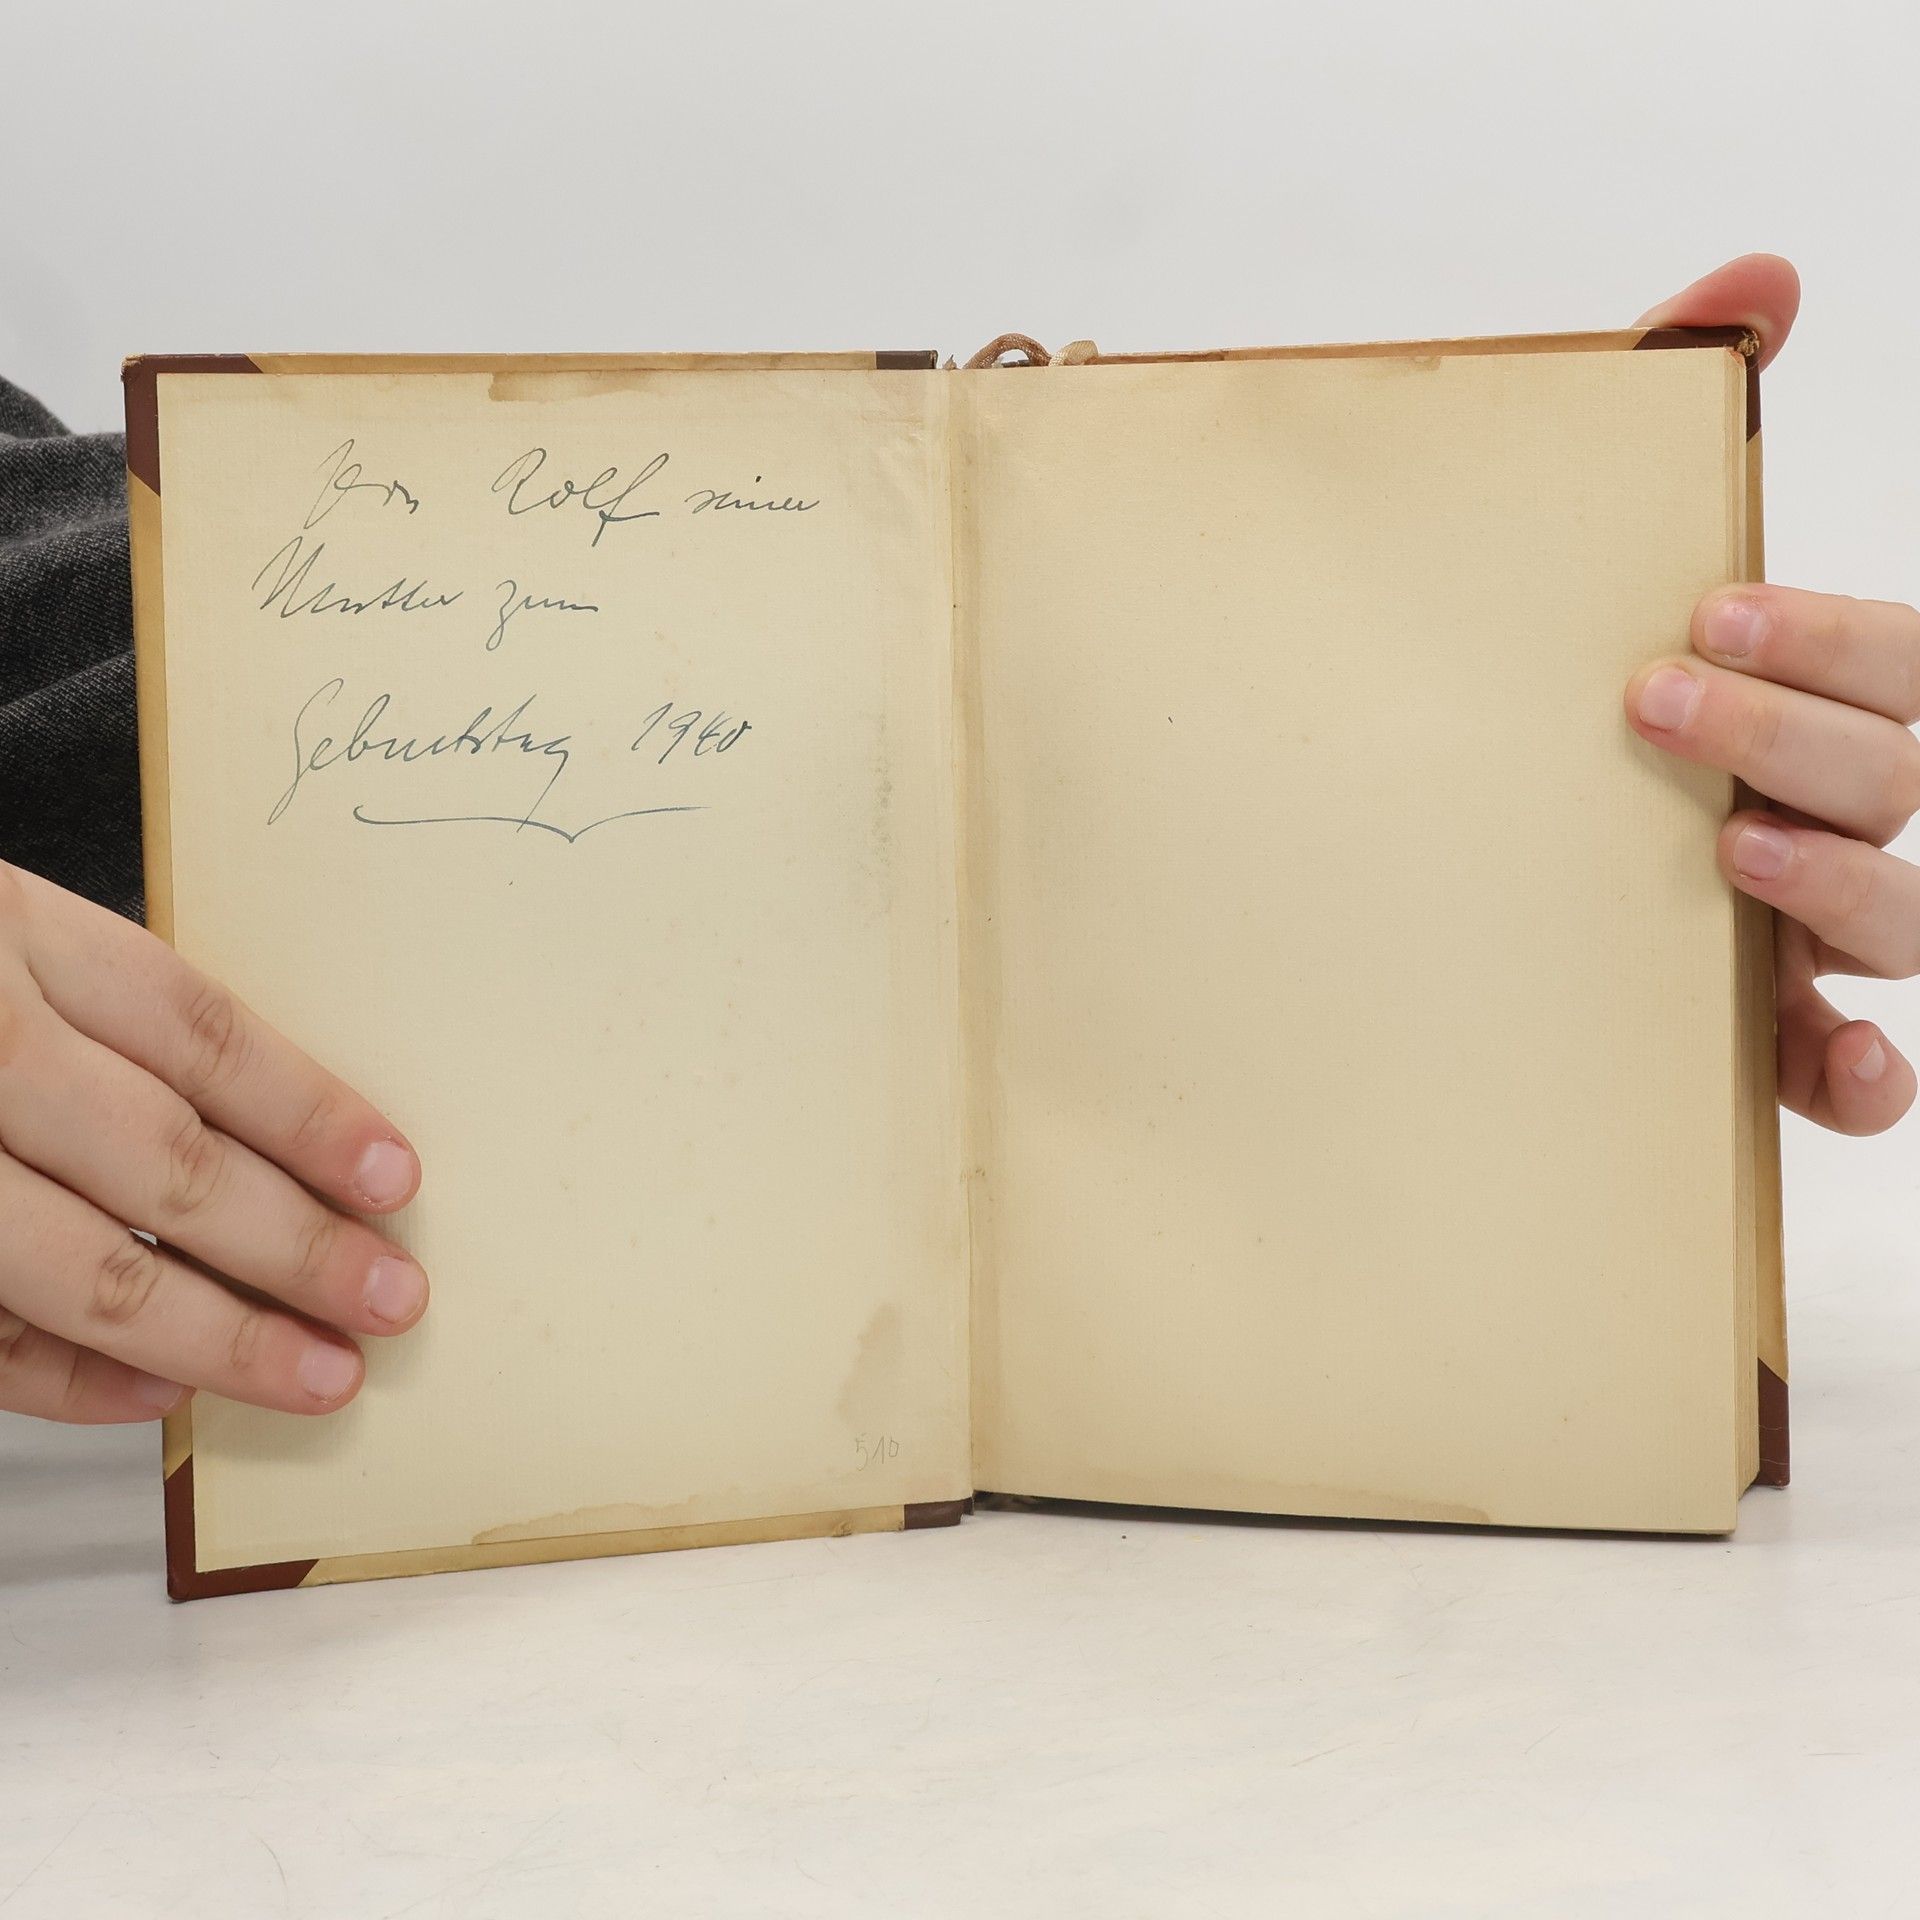 Von Rolf seiner
Mutter zum
Geburtstag 1940
510